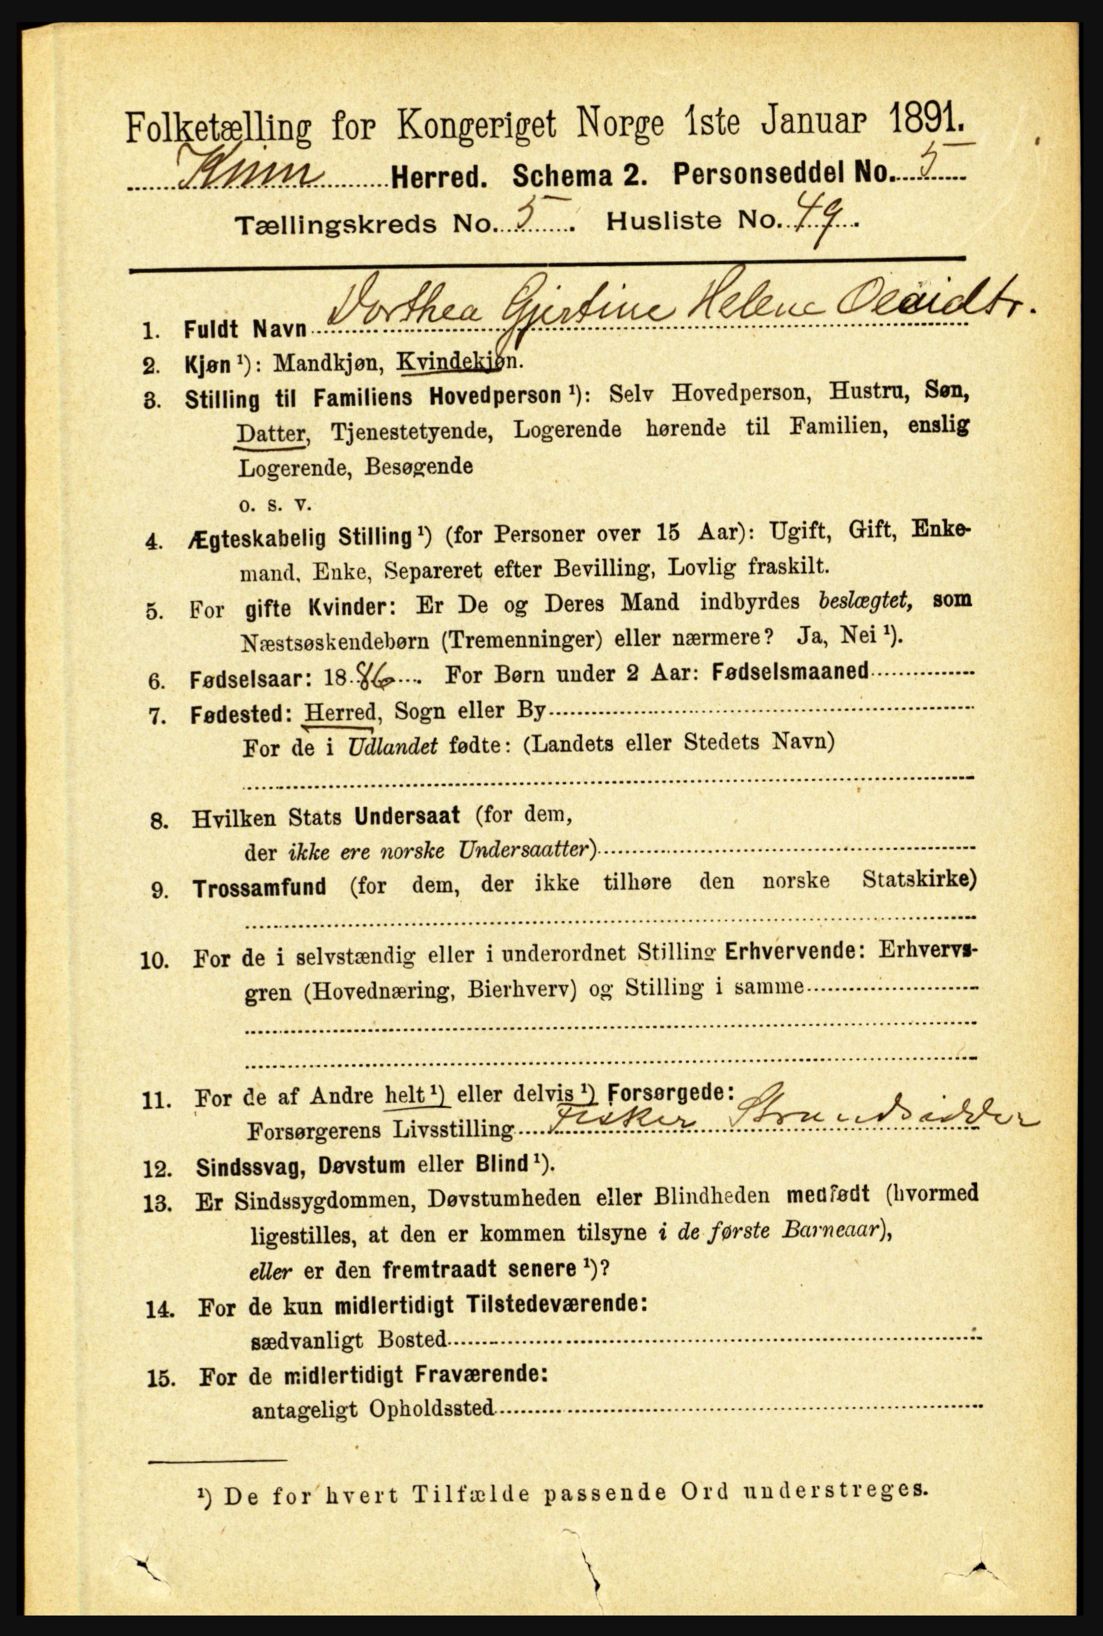 Folketælling for Kongeriget Norge 1ste Januar 1891.
Kinn Herred. Schema 2. Personseddel No. 5
Tællingskreds No. 5. Husliste No. 49.
1. Fuldt Navn Dorthea Gjertine Helene Olaidtr.
2. Kjøn ¹): Mandkjøn, Kvindekjøn.
3. Stilling til Familiens Hovedperson ¹): Selv Hovedperson, Hustru, Søn,
Datter, Tjenestetyende, Logerende hørende til Familien, enslig
Logerende, Besøgende
o. s. v.
4. Ægteskabelig Stilling ¹) (for Personer over 15 Aar): Ugift, Gift, Enke-
mand, Enke, Separeret efter Bevilling, Lovlig fraskilt.
5. For gifte Kvinder: Er De og Deres Mand indbyrdes beslægtet, som
Næstsøskendebørn (Tremenninger) eller nærmere? Ja, Nei ¹).
6. Fødselsaar: 1886. For Børn under 2 Aar: Fødselsmaaned
7. Fødested: Herred, Sogn eller By
For de i Udlandet fødte: (Landets eller Stedets Navn)
8. Hvilken Stats Undersaat (for dem,
der ikke ere norske Undersaatter)
9. Trossamfund (for dem, der ikke tilhøre den norske Statskirke)
10. For de i selvstændig eller i underordnet Stilling Erhvervende: Erhvervs-
gren (Hovednæring, Bierhverv) og Stilling i samme
11. For de af Andre helt ¹) eller delvis ¹) Forsørgede:
Forsørgerens Livsstilling Fisker Strandsidder
12. Sindssvag, Døvstum eller Blind ¹).
13. Er Sindssygdommen, Døvstumheden eller Blindheden medfødt (hvormed
ligestilles, at den er kommen tilsyne i de første Barneaar),
eller er den fremtraadt senere ¹)?
14. For de kun midlertidigt Tilstedeværende:
sædvanligt Bosted
15. For de midlertidigt Fraværende:
antageligt Opholdssted
¹) De for hvert Tilfælde passende Ord understreges.